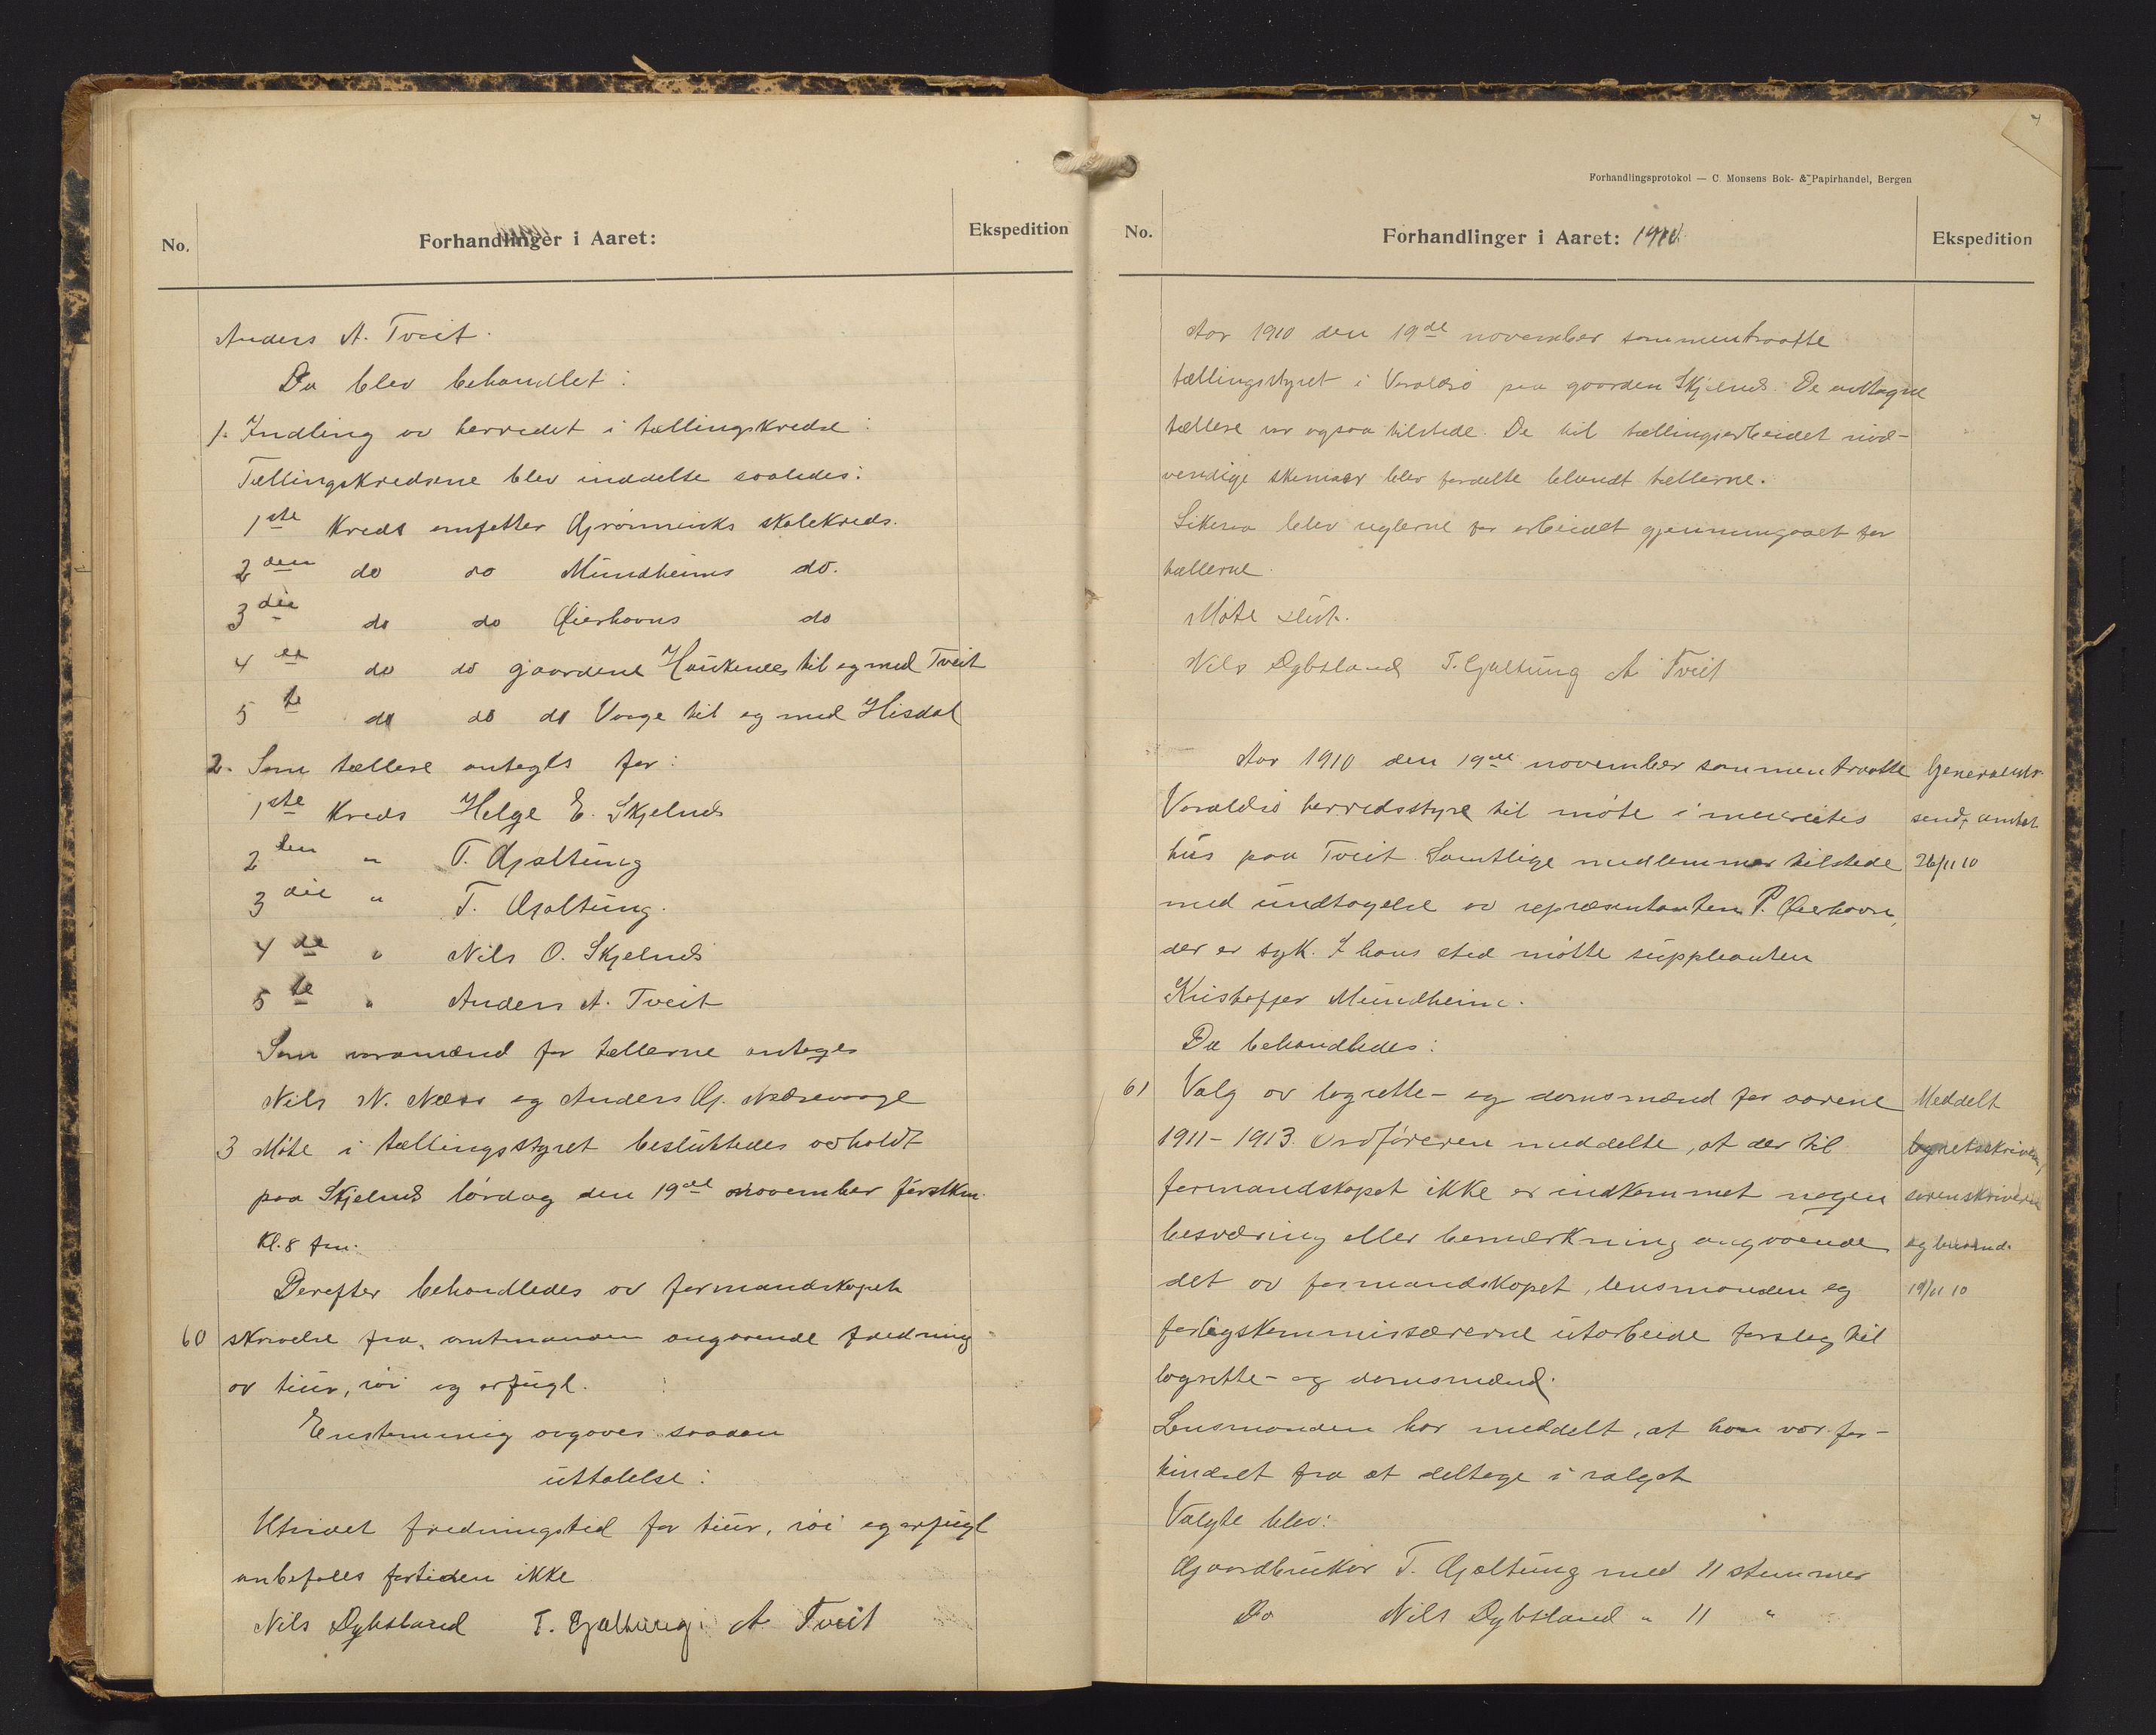 No.
Forhandlinger i Aaret:
Ekspedition
Anders A. Tveit.
Da blev behandlet:
1. Indling av herredet i tællingskredse:
Tællingskredsene blev inddelte saaledes:
1ste Kreds omfatter Gjrønneviks skolekreds.
2den do do Mundheims do.
3die do do Øierhavns do
4de do do gaardene Haukenes til og med Tveit
5te do do do Vaage til og med Hisdal
2. Som tællere antages for:
1ste Kreds Helge E. Skjelnes
2den " T. Gjaltung
3die " T. Gjaltung.
4de " Nils O. Skjelnes
5te " Anders A. Tveit
Som varamænd for tællerne antages
Nils N. Næss og Anders G. Nedrevaage
3 Møte i tællingsstyret besluttedes avholdt
paa Skjelnes lørdag den 19de november førstkm.
Kl. 8 fm.
Derefter behandledes av formandskapet
60 skrivelse fra amtmanden angaaende fredning
av tiur, røi og aarfugl.
Enstemmig avgaves saadan
uttalelse:
Utvidet fredningstid for tiur, røi og aarfugl
anbefales fortiden ikke
Nils Dybsland T. Gjaltung A. Tveit
Forhandlingsprotokol — C. Monsens Bok- & Papirhandel, Bergen
No.
Forhandlinger i Aaret: 1910.
Ekspedition
Aar 1910 den 19de november sammentraatte
tællingsstyret i Varaldsø paa gaarden Skjelnes. De antagne
tællere var ogsaa tilstede. De til tællingsarbeidet nød-
vendige skemaer blev fordelte blandt tællerne.
Likesaa blev reglerne for arbeidet gjennemgaaet for
tællerne.
Møte slut.
Nils Dybsland T. Gjaltung A Tveit
Aar 1910 den 19de november sammentraatte
Varaldsø herredsstyre til møte i meieriets
hus paa Tveit. Samtlige medlemmer tilstede
med undtagelse av repræsentanten P. Øierhavn,
der er syk. I hans sted møtte suppleanten
Kristoffer Mundheim.
Da behandledes:
61 Valg av lagrette- og domsmænd for aarene
1911-1913. Ordføreren meddelte, at der til
formandskapet ikke er indkommet nogen
besværing eller bemærkning angaaende
det av formandskapet, lensmanden og
forligskommissærerne utarbeide forslag til
lagrette- og domsmænd.
Lensmanden har meddelt, at han var for-
hindret fra at deltage i valget
Valgte blev:
Gaardbruker T. Gjaltung med 11 stemmer
Do Nils Dybsland " 11 "
Generaludsr.
send. amtet
26/11 10
Meddelt
lagretsskriveren,
sorenskriveren
og lensmd.
19/11 10